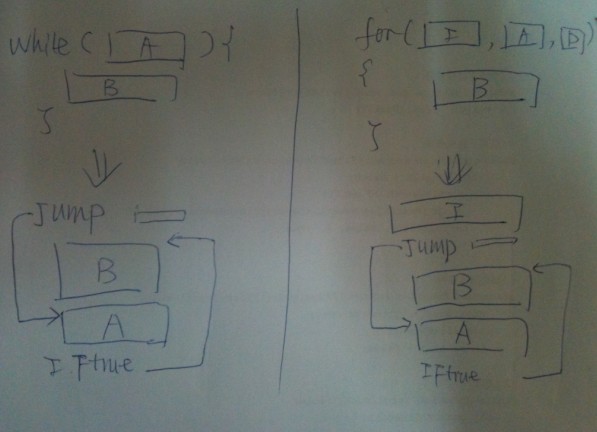 while ( A ) {
B
}
Jump
B
A
IFtrue
for( I , A , D )
{
B
}
I
Jump
B
A
IFtrue